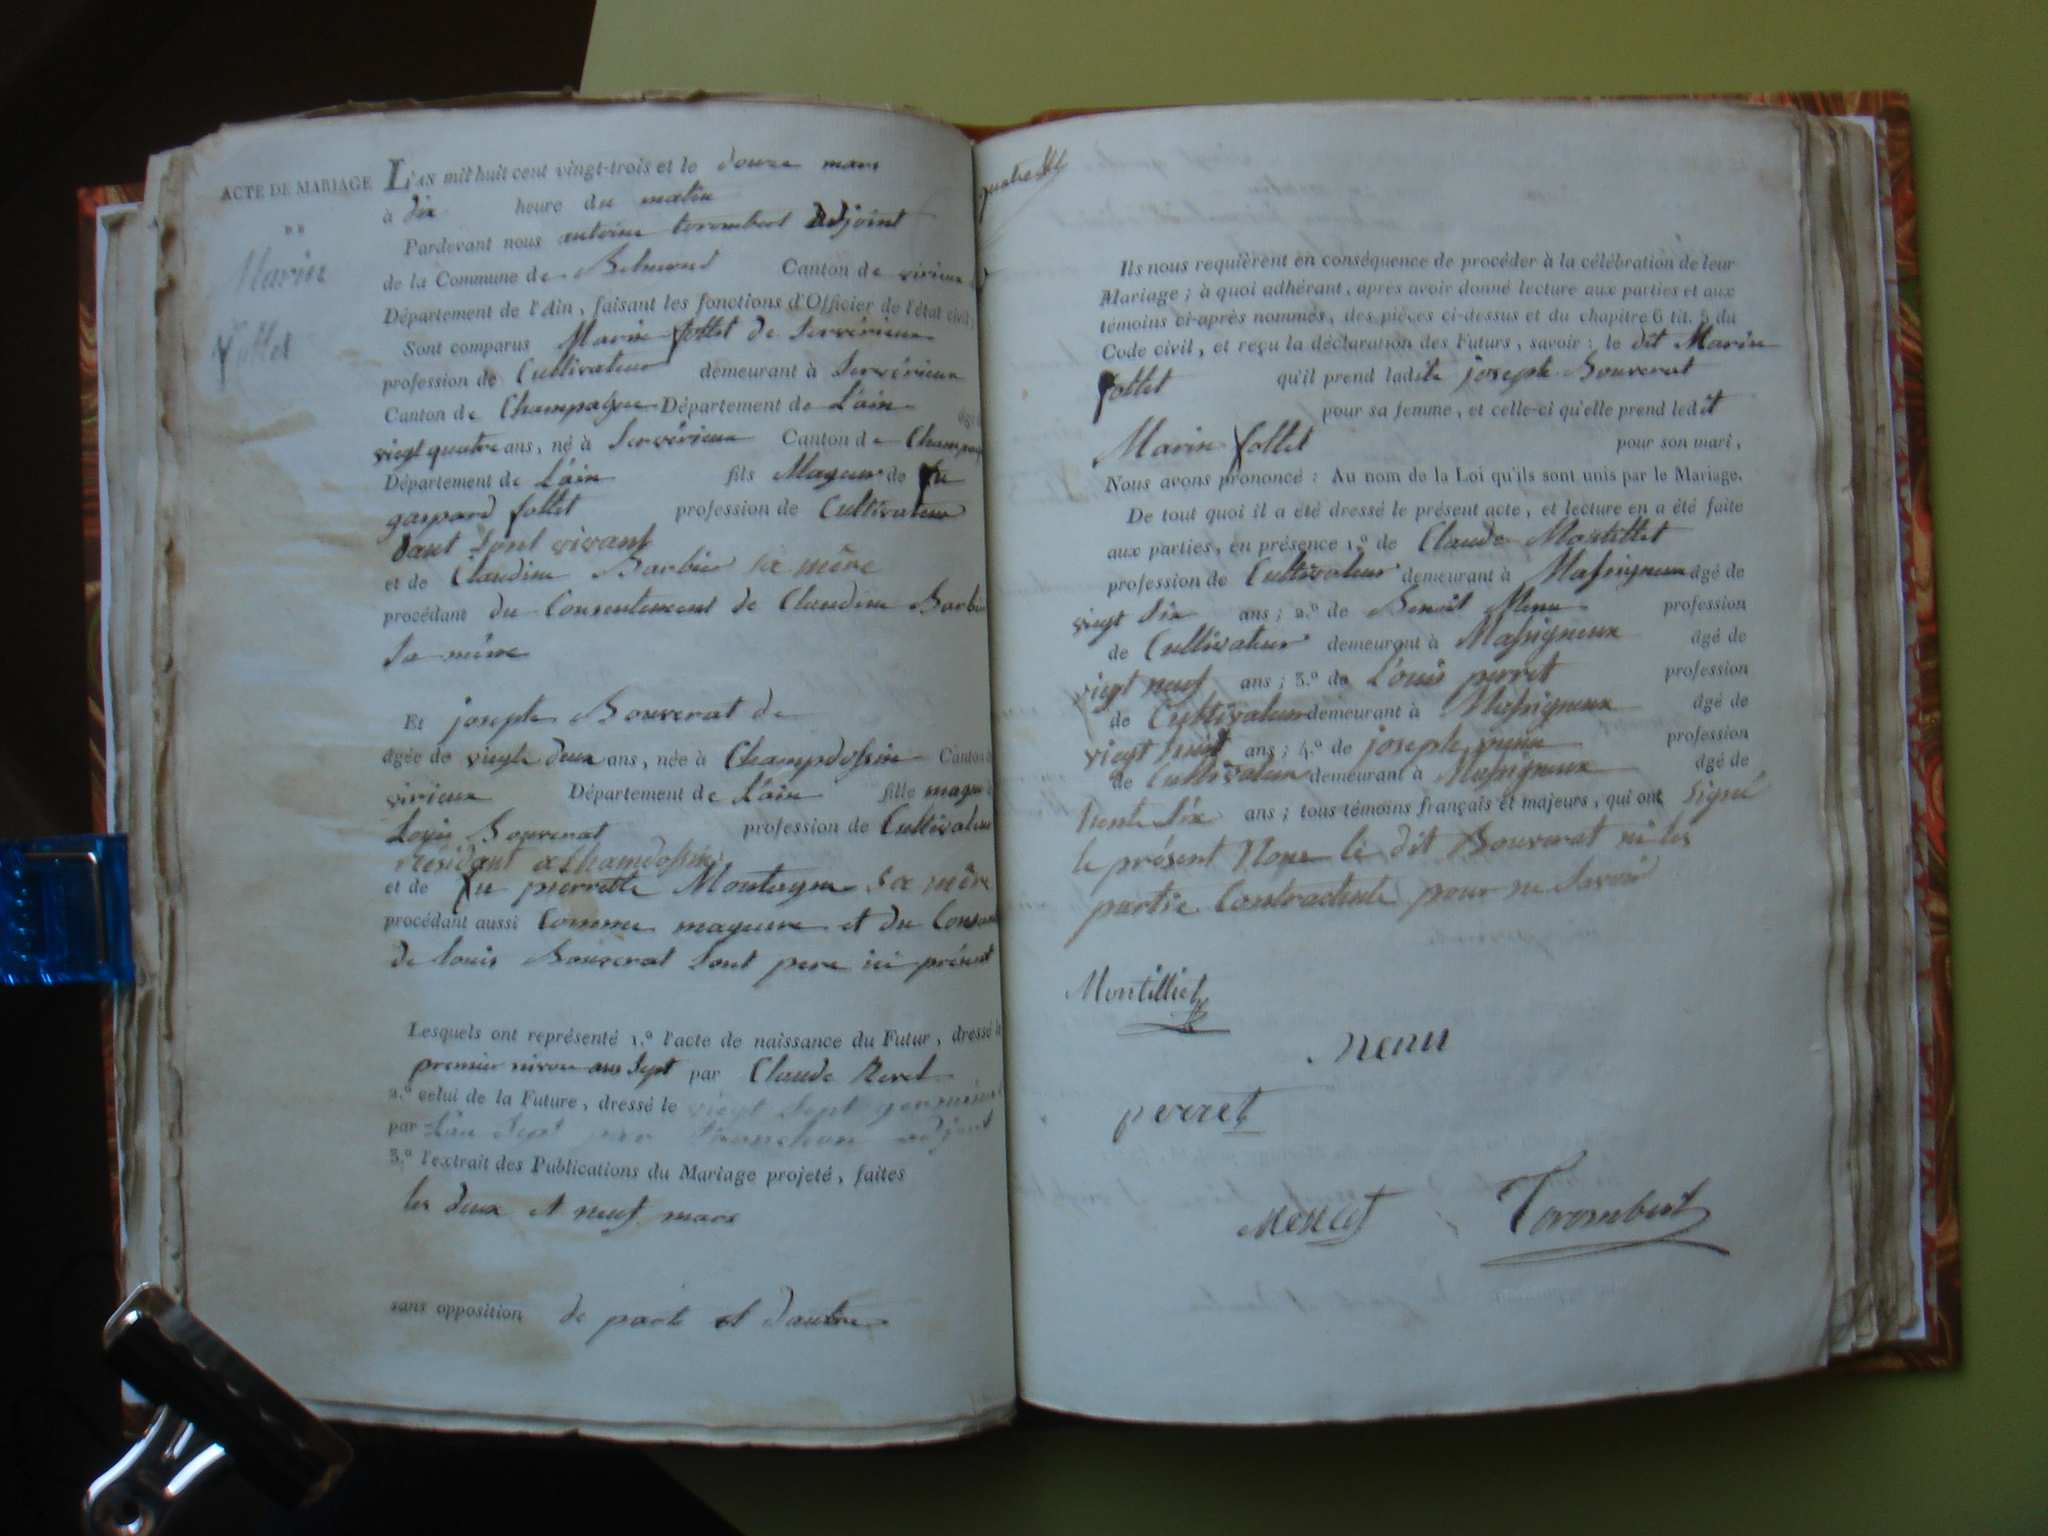 ACTE DE MARIAGE
DE
Marin
follet
L'AN mil huit cent vingt-trois et le douze mars
à dix heure du matin
Pardevant nous antoine torombert Adjoint
de la Commune de Belmond Canton de virieux
Département de l'Ain, faisant les fonctions d'Officier de l'état civil,
Sont comparus Marin follet de Servérieux
profession de Cultivateur demeurant à Servérieux
Canton de Champagne Département de L'ain âgé
vingt quatre ans, né à Servérieux Canton de Champag
Département de L'ain fils Mageur de fu
gaspard follet profession de Cultivateur
dant sont vivant
et de Claudine Barbier sa mère
procédant du Consentement de Claudine Barbie
sa mère
Et joseph Bouverat de
âgée de vingt deux ans, née à Champdossin Canton
virieux Département de L'ain fille mageu
Louis Bouverat profession de Cultivateu
résidant a Chamdossin
et de fu pierrette Montagne sa mère
procédant aussi Comme mageure et du Consan
de louis Bouverat sont pere ici présent
Lesquels ont représenté 1.º l'acte de naissance du Futur, dressé le
premier nivou ans sept par Claude
2.º celui de la Future, dressé le vingt sept germinal
par L'an sept par adjoint
3.º l'extrait des Publications du Mariage projeté, faites
les deux et neuf mars
sans opposition de part et dautre
Ils nous requièrent en conséquence de procéder à la célébration de leur
Mariage; à quoi adhérant, après avoir donné lecture aux parties et aux
témoins ci-après nommés, des pièces ci-dessus et du chapitre 6 tit. 5 du
Code civil, et reçu la déclaration des Futurs, savoir: le dit Marin
follet qu'il prend ladite joseph Bouverat
pour sa femme, et celle-ci qu'elle prend ledit
Marin follet pour son mari,
Nous avons prononcé: Au nom de la Loi qu'ils sont unis par le Mariage.
De tout quoi il a été dressé le présent acte, et lecture en a été faite
aux parties, en présence 1.º de Claude Montillet
profession de Cultivateur demeurant à Massigneux âgé de
vingt six ans; 2.º de Benoit Menu profession
de Cultivateur demeurant à Massigneux âgé de
vingt neuf ans; 3.º de Louis perret profession
de Cultivateur demeurant à Massigneux âgé de
vingt huit ans; 4.º de joseph profession
de Cultivateur demeurant à Massigneux âgé de
trente six ans; tous témoins français et majeurs, qui ont signé
le présent Nom le dit Bouverat ni les
partie Contractente pour ne savoir
Montilliet
menu
perret
Torombert